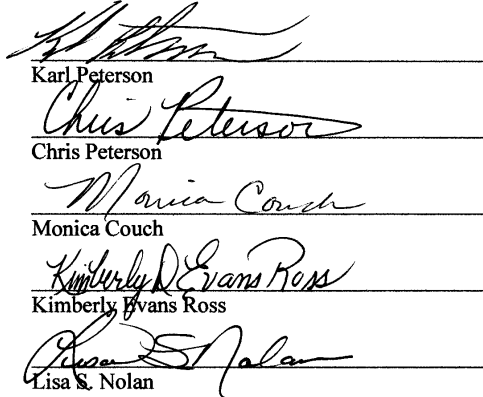 Karl Peterson
Chris Peterson
Chris Peterson
Monica Couch
Monica Couch
Kimberly D Evans Ross
Kimberly Evans Ross
S Nolan
Lisa S. Nolan